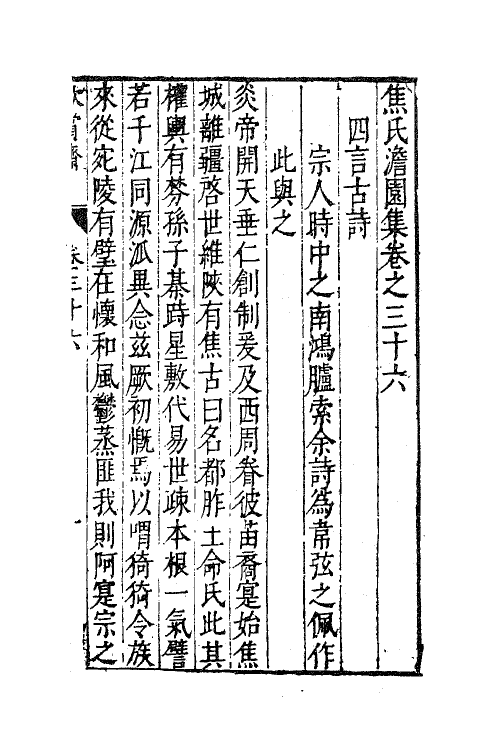 焦氏澹園集卷之三十六
四言古詩
宗人時中之南鴻臚索余詩為韋弦之佩作
此與之
炎帝開天垂仁創制爰及西周眷彼苗裔寔始焦
城離疆啓世維陝有焦古曰名都胙土命氏此其
權輿有棼孫子棊蒔星敷代易世疎本根一氣譬
若千江同源派異念茲厥初慨焉以喟猗猗令族
來從宛陵有璧在懷和風鬱蒸匪我則阿寔宗之
卷三十六
一